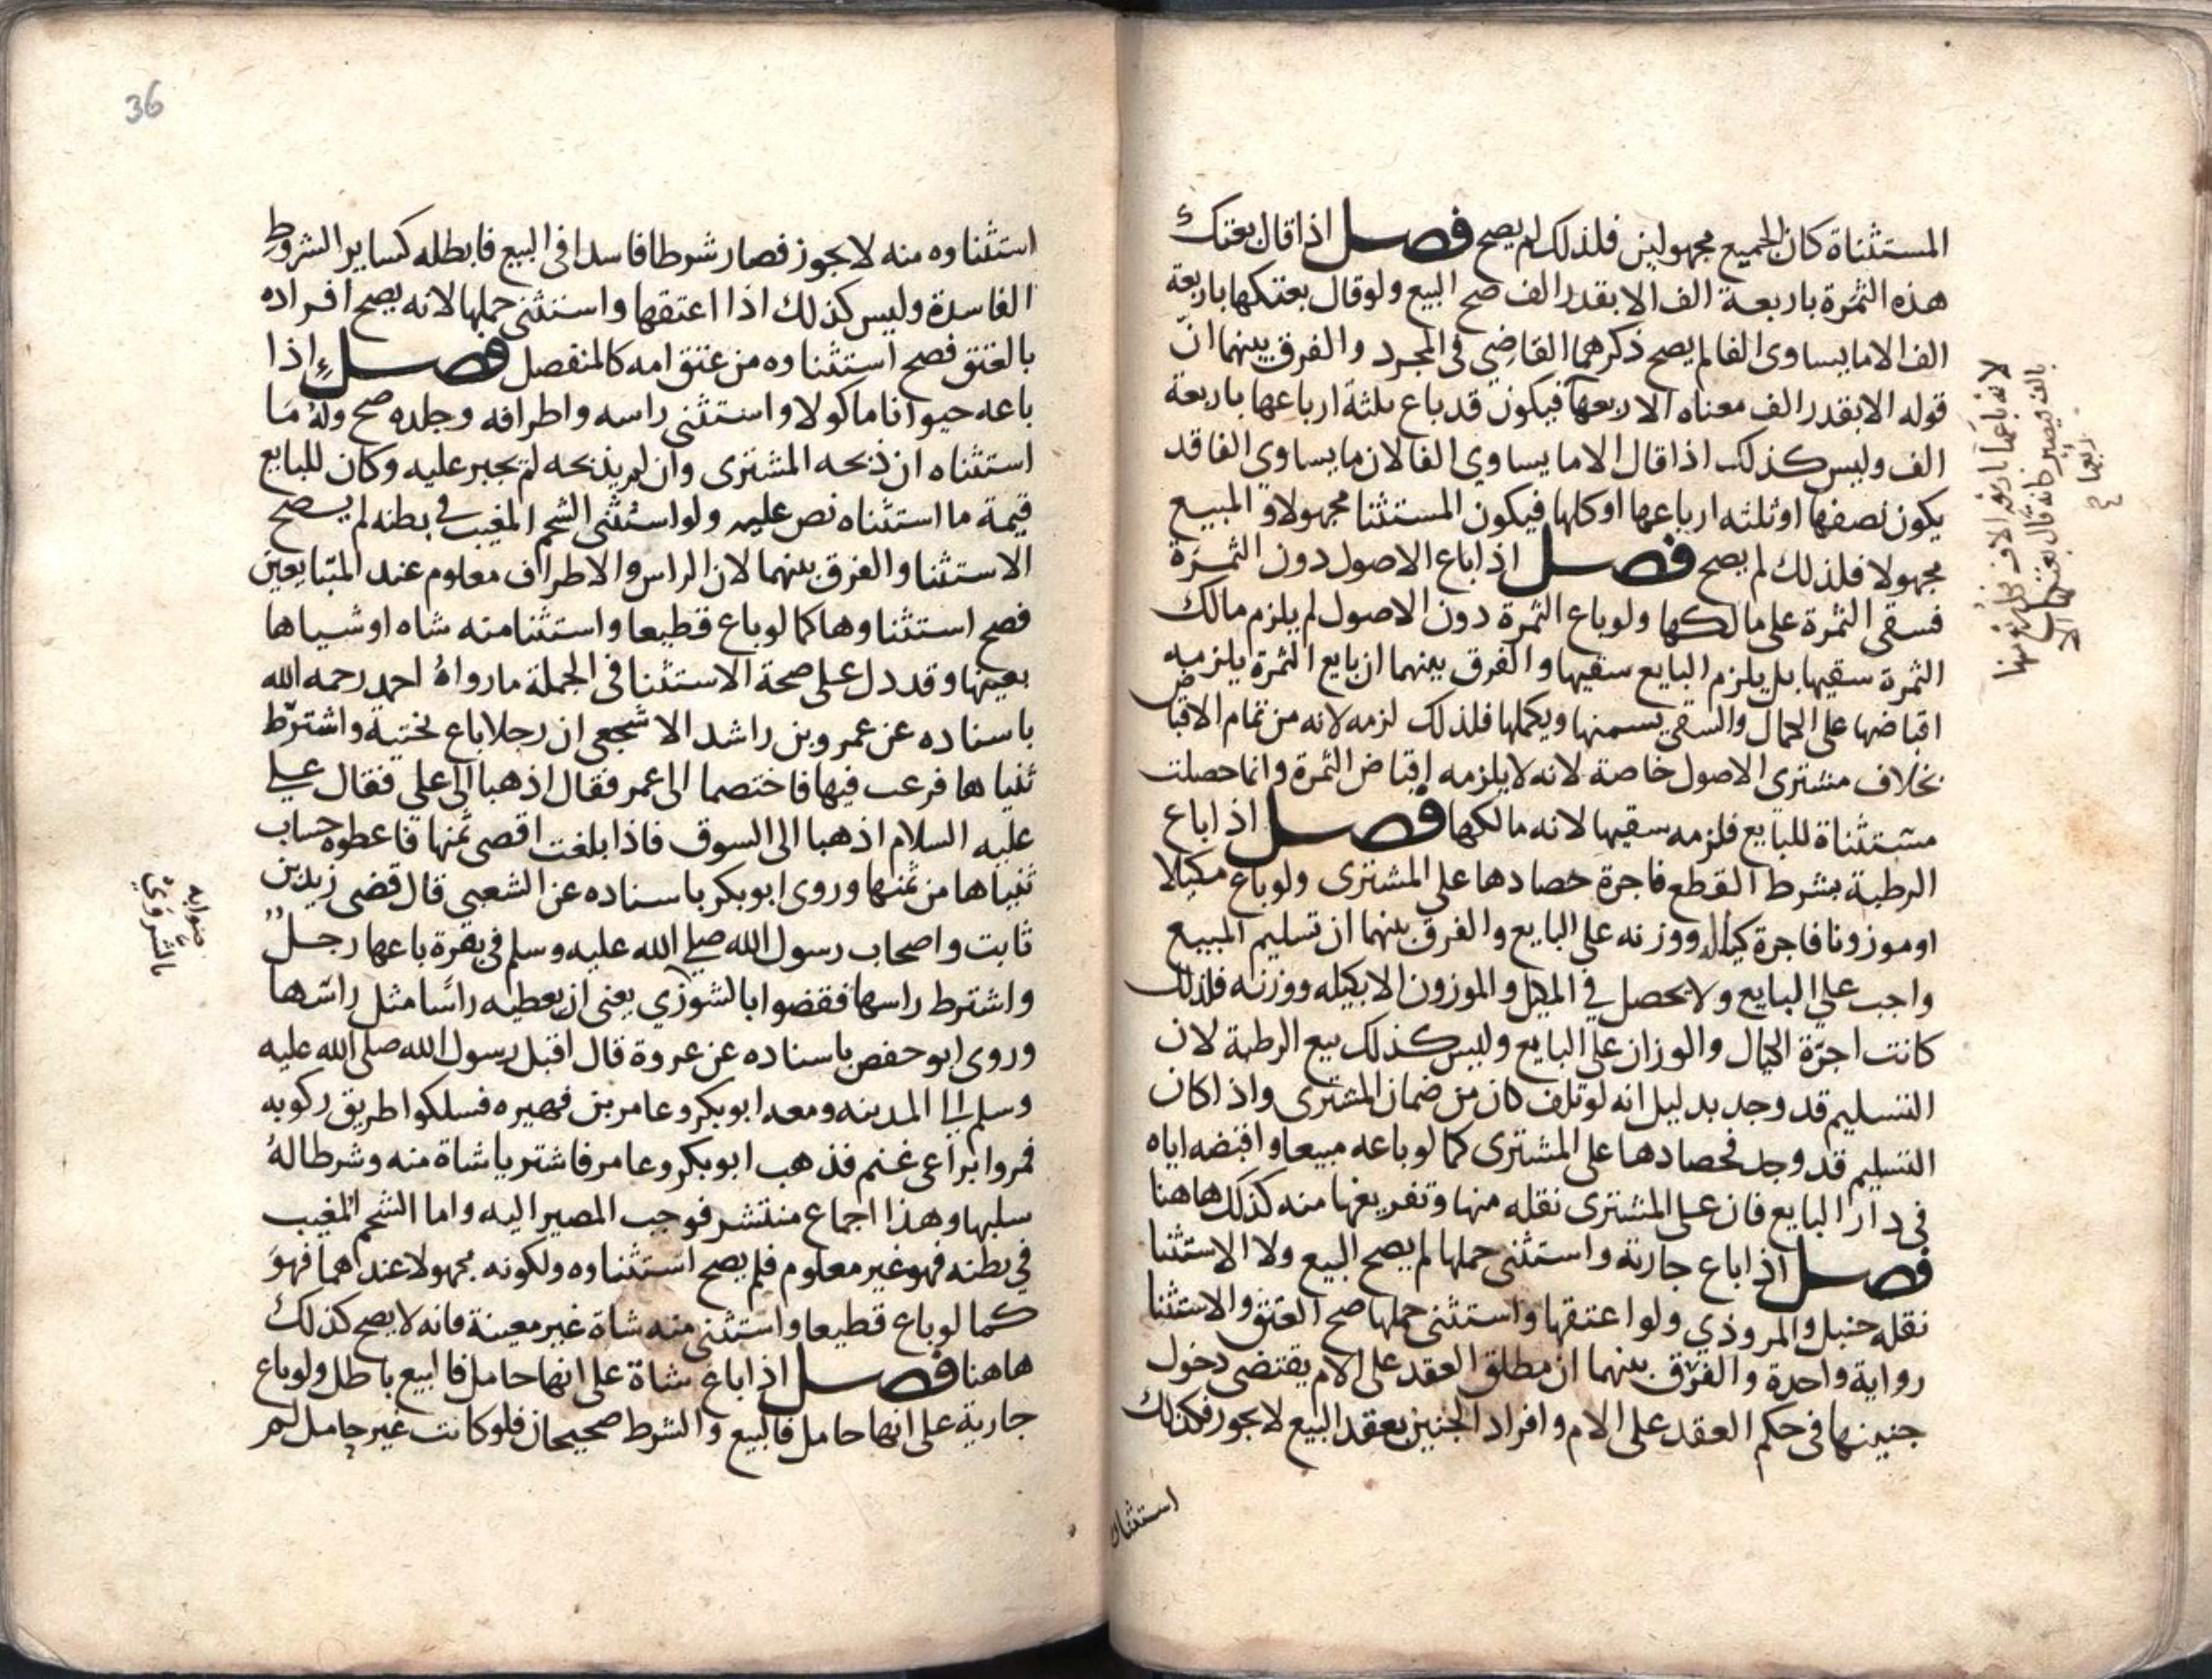 المستثناة كان الجميع مجهولين فلذلك لم يصح فصل اذا قال بعتك
هذه الثمرة باربعة الف الا بقدر الف صح البيع ولو قال بعتكها باربعة
الف الا ما يساوى الفا لم يصح ذكرهما القاضي في المجرد والفرق بينهما ان
قوله الا بقدر الف معناه الا ربعها فيكون قد باع ثلثة ارباعها باربعة
الف وليس كذلك اذا قال الا ما يساوي الفا لان ما يساوي الفا قد
يكون نصفها او ثلثه ارباعها او كلها فيكون المستثنا مجهولا والمبيع
مجهولا فلذلك لم يصح فصل اذا باع الاصول دون الثمرة
فسقى الثمرة على مالكها ولو باع الثمرة دون الاصول لم يلزم مالك
الثمرة سقيها بل يلزم البايع سقيها والفرق بينهما ان بايع الثمرة يلزمه
اقباضها على الكمال والسقي يسمنها ويكملها فلذلك لزمه لانه من تمام الاقباض
بخلاف مشترى الاصول خاصة لانه لا يلزمه اقباض الثمرة وانما حصلت
مستثناة للبايع فلزمه سقيها لانه مالكها فصل اذا باع
الرطبة بشرط القطع فاجرة حصادها على المشترى ولو باع مكيلا
او موزونا فاجرة كياله ووزنه على البايع والفرق بينهما ان تسليم المبيع
واجب على البايع ولا يحصل في المكيل والموزون الا بكيله ووزنه فلذلك
كانت اجرة الكيال والوزان على البايع وليس كذلك بيع الرطبة لان
التسليم قد وجد بدليل انه لو تلف كان من ضمان المشترى واذا كان
التسليم قد وجد فحصادها على المشترى كما لو باعه مبيعا واقبضه اياه
في دار البايع فان على المشترى نقله منها وتفريغها منه كذلك هاهنا
فصل اذا باع جارية واستثنى حملها لم يصح البيع ولا الاستثنا
نقله حنبل والمروذي ولو اعتقها واستثنى حملها صح العتق والاستثنا
رواية واحدة والفرق بينهما ان مطلق العقد على الام يقتضى دخول
جنينها في حكم العقد على الام وافراد الجنين بعقد البيع لا يجوز فكذلك
استثناوه
لانه باعها باربعة الاف
بالف فيصير كانه قال بعتكها الا
ربعها
36
استثناوه منه لا يجوز فصار شرطا فاسدا في البيع فابطله كساير الشروط
الفاسدة وليس كذلك اذا اعتقها واستثنى حملها لانه يصح افراده
بالعتق فصح استثناوه من عتق امه كالمنفصل فصل اذا
باعه حيوانا ماكولا واستثنى راسه واطرافه وجلده صح وله ما
استثناه ان ذبحه المشترى وان لم يذبحه لم يجبر عليه وكان للبايع
قيمة ما استثناه نص عليه ولو استثنى الشحم المغيب في بطنه لم يصح
الاستثنا والفرق بينهما لان الراس والاطراف معلوم عند المتبايعين
فصح استثناوها كما لو باع قطيعا واستثنا منه شاه او شياها
بعينها وقد دل على صحة الاستثنا في الجملة ما رواه احمد رحمه الله
باسناده عن عمرو بن راشد الاشجعى ان رجلا باع بختية واشترط
ثنياها فرعب فيها فاختصما الى عمر فقال اذهبا الى علي فقال علي
عليه السلام اذهبا الى السوق فاذا بلغت اقصى ثمنها فاعطوه حساب
ثنياها من ثمنها وروى ابو بكر باسناده عن الشعبي قال قضى زيد بن
ثابت واصحاب رسول الله صلى الله عليه وسلم في بقرة باعها رجل
واشترط راسها فقضوا بالشوزي يعنى ان يعطيه راسا مثل راسها
وروى ابو حفص باسناده عن عروة قال اقبل رسول الله صلى الله عليه
وسلم الى المدينه ومعه ابو بكر وعامر بن فهيره فسلكوا طريق ركوبه
فمروا براعى غنم فذهب ابو بكر وعامر فاشتريا شاة منه وشرطا له
سلبها وهذا اجماع منتشر فوجب المصير اليه واما الشحم المغيب
في بطنه فهو غير معلوم فلم يصح استثناوه ولكونه مجهولا عنداهما فهو
كما لو باع قطيعا واستثنى منه شاة غير معينة فانه لا يصح كذلك
هاهنا فصل اذا باع شاة على انها حامل فالبيع باطل ولو باع
جارية على انها حامل فالبيع والشرط صحيحان فلو كانت غير حامل لم
صوابه
بالشروي